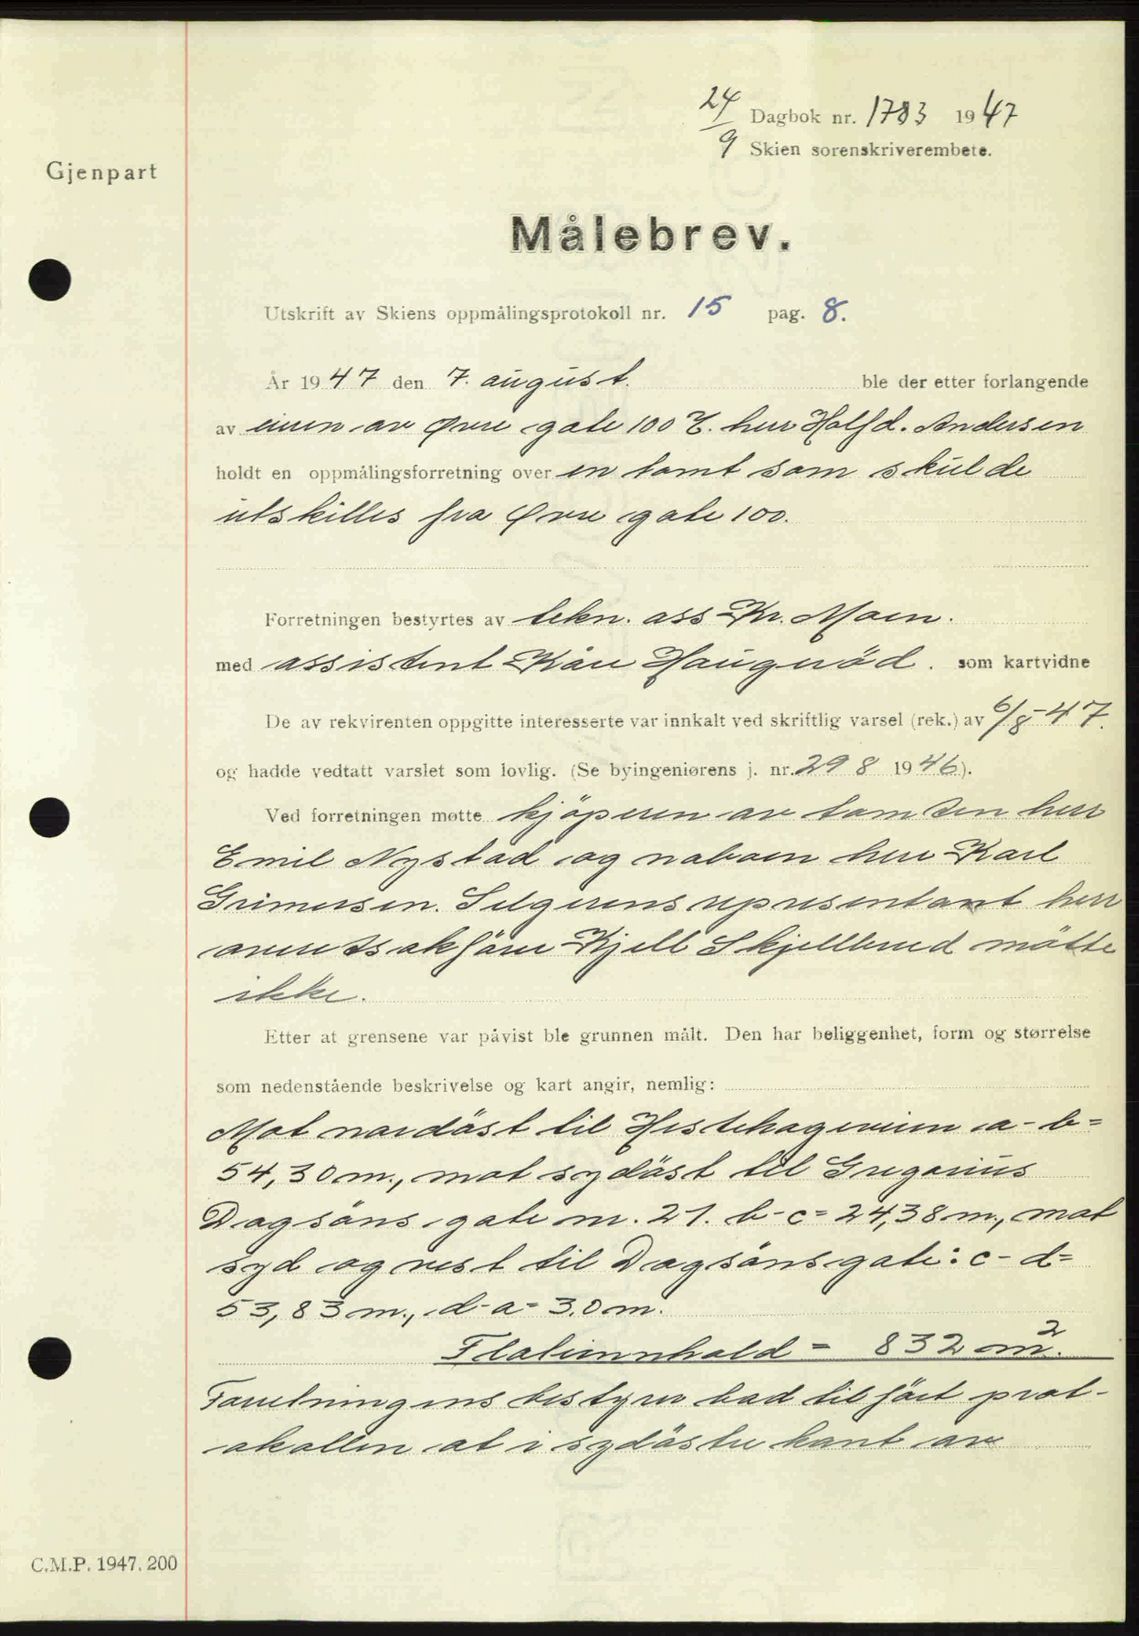 24/9 Dagbok nr. 1783 1947
Skien sorenskriverembete.
Gjenpart
Målebrev.
Utskrift av Skiens oppmålingsprotokoll nr. 15 pag. 8.
År 1947 den 7. august. ble der etter forlangende
av eieren av Øvre gate 100 herr Halfd. Andersen
holdt en oppmålingsforretning over en tomt som skulde
utskilles fra Øvre gate 100.
Forretningen bestyrtes av tekn. ass Kr. Moen.
med assistent Kåre Haugerød. som kartvidne
De av rekvirenten oppgitte interesserte var innkalt ved skriftlig varsel (rek.) av 6/8-47.
og hadde vedtatt varslet som lovlig. (Se byingeniørens j. nr. 298 1946).
Ved forretningen møtte kjöperen av tomten herr
Emil Nystad og naboen herr Karl
Grimersen. Selgerens representant herr
overrettsakförer Kjell Skjellbred mötte
ikke.
Etter at grensene var påvist ble grunnen målt. Den har beliggenhet, form og størrelse
som nedenstående beskrivelse og kart angir, nemlig:
Mot nordöst til Hestehageveien a-b=
54,30 m., mot sydöst til Gregorius
Dagsöns gate nr. 21. b-c= 24,38 m., mot
syd og vest til Dagsönsgate: c-d=
53,83 m., d-a= 3.0 m.
Flateinnhold = 832 m².
Forretningens bestyrer bad tilfört prot-
okollen at i sydöstre kant av
C.M.P. 1947. 200